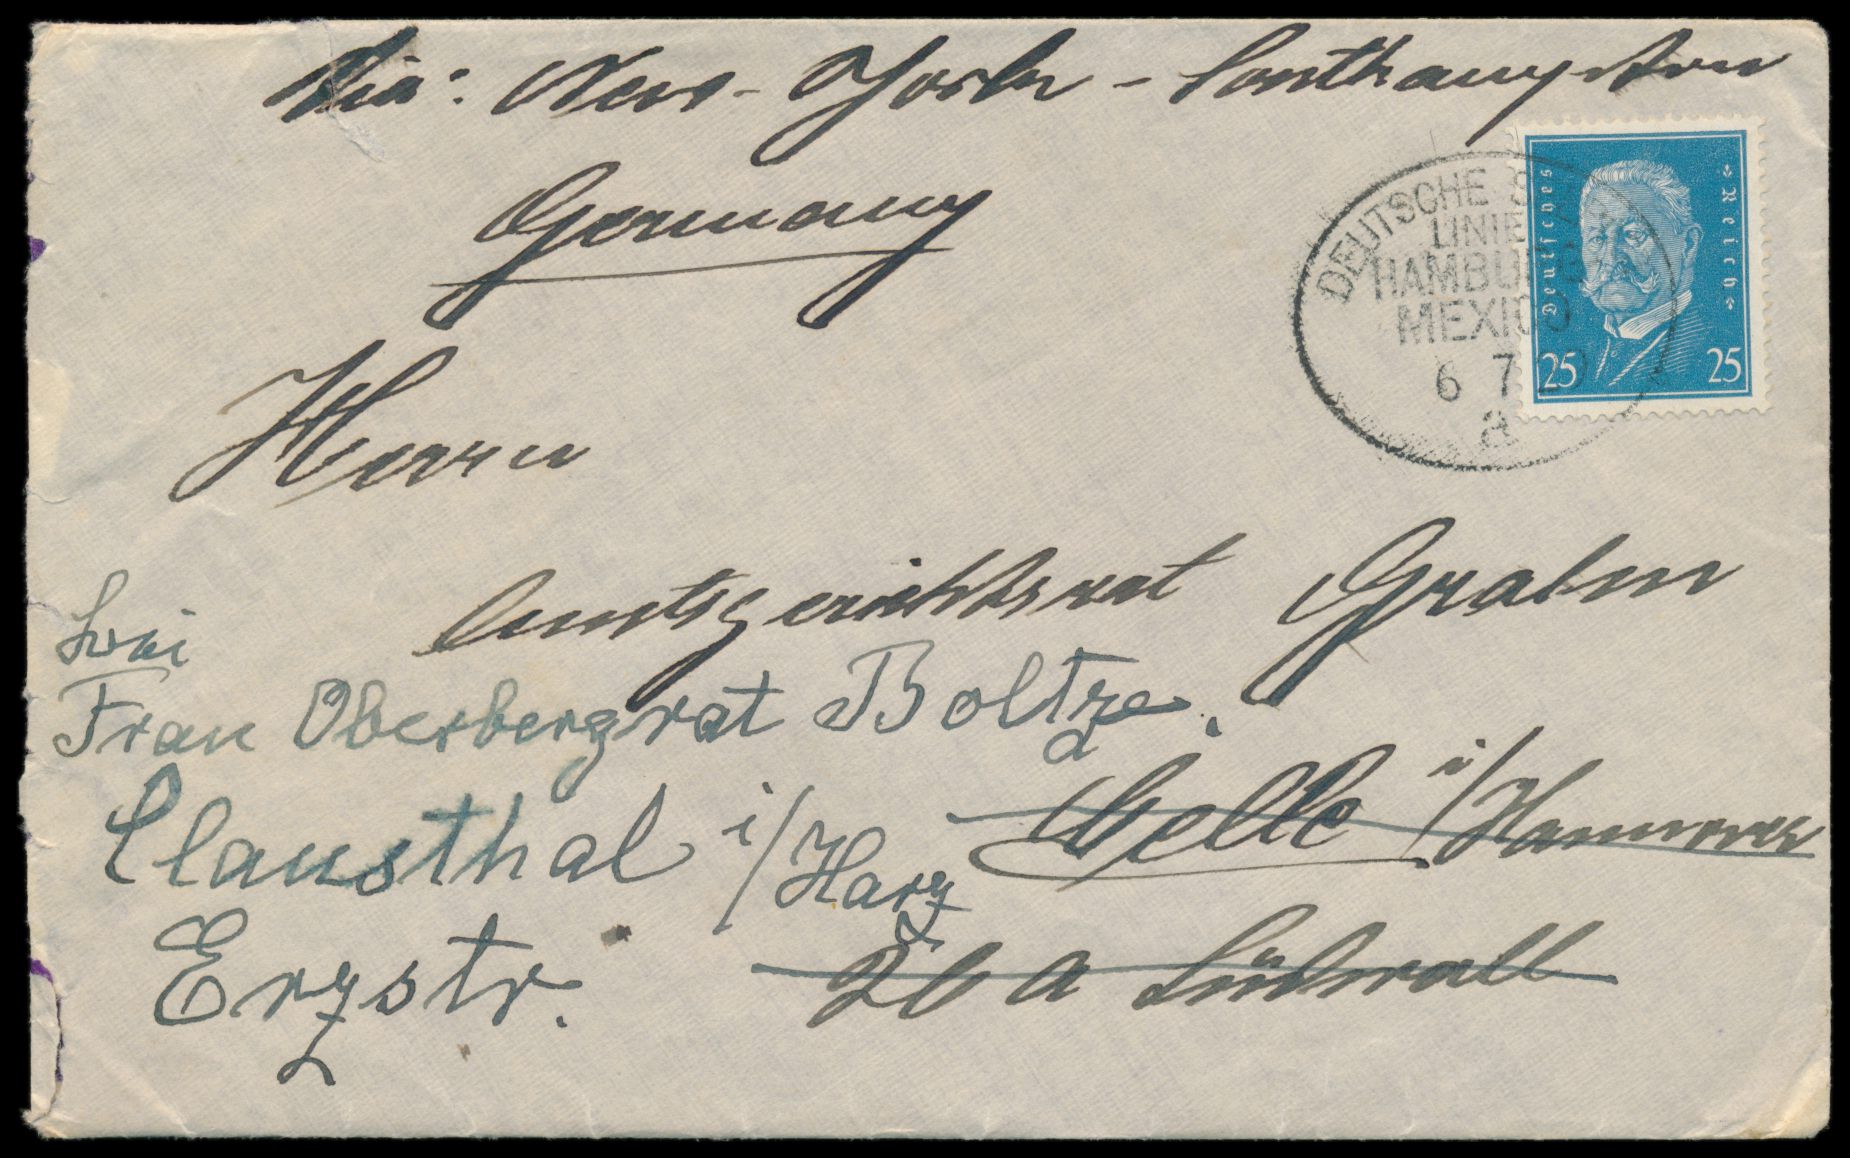 Via: New-York - Southampton
Germany
DEUTSCHE S
LINIE
HAMBURG
MEXICO
6 7
a
Deutsches Reich
25 25
Herrn
Amtsgerichtsrat Grahn
bei
Frau Oberbergrat Boltze.
Celle i/Hannover
Clausthal i/Harz
26 a Südwall
Erzstr.